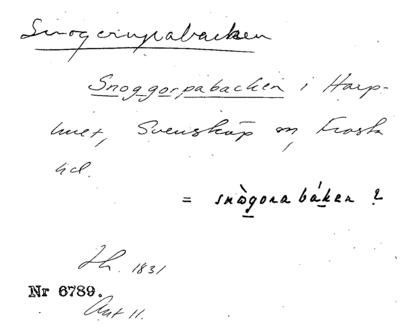 Snogeirupabacken
Snoggorpabacken i Harp-
hult, Svensköp sn, Frosta
hd.
= snògora bákен ?
Lh. 1831
Nr 6789.
Akt 11.